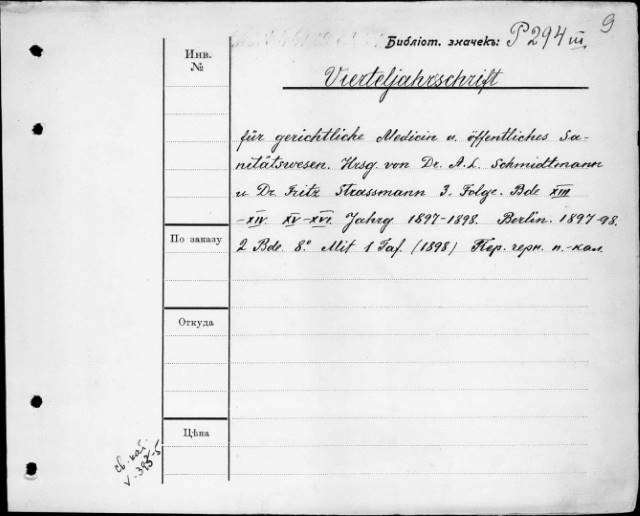 9
Библіот. значекъ: P 294 III.
Инв.
№
Vierteljahrsschrift
für gerichtliche Medicin u. öffentliches Sa-
nitätswesen. Hrsg. von Dr. A. L. Schmidtmann
u Dr. Fritz Strassmann 3. Folge. Bde XIII
-XIV. XV-XVI. Jahrg 1897-1898. Berlin. 1897-98.
По заказу
2 Bde 8.° Mit 1 Taf. (1898) Пер. черн. п.-кол.
Откуда
Цѣна
св. кат.